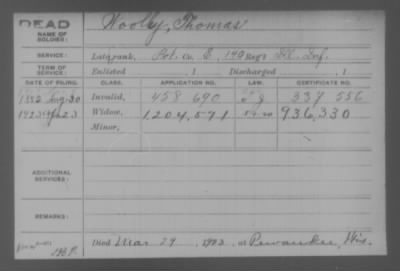 DEAD
NAME OF SOLDIER: Woolly, Thomas
SERVICE: Late rank, Pvt. Co. E, 140 Reg't Ill. Inf.
TERM OF SERVICE: Enlisted , 1 Discharged , 1
DATE OF FILING. CLASS. APPLICATION NO. LAW. CERTIFICATE NO.
1882 Aug. 30 Invalid, 458 690 337 556
1923 23 Widow, 1,204,571 936,330
Minor,
ADDITIONAL SERVICES:
REMARKS:
Died Mar 29, 1923, at Pewaukee, Wis.